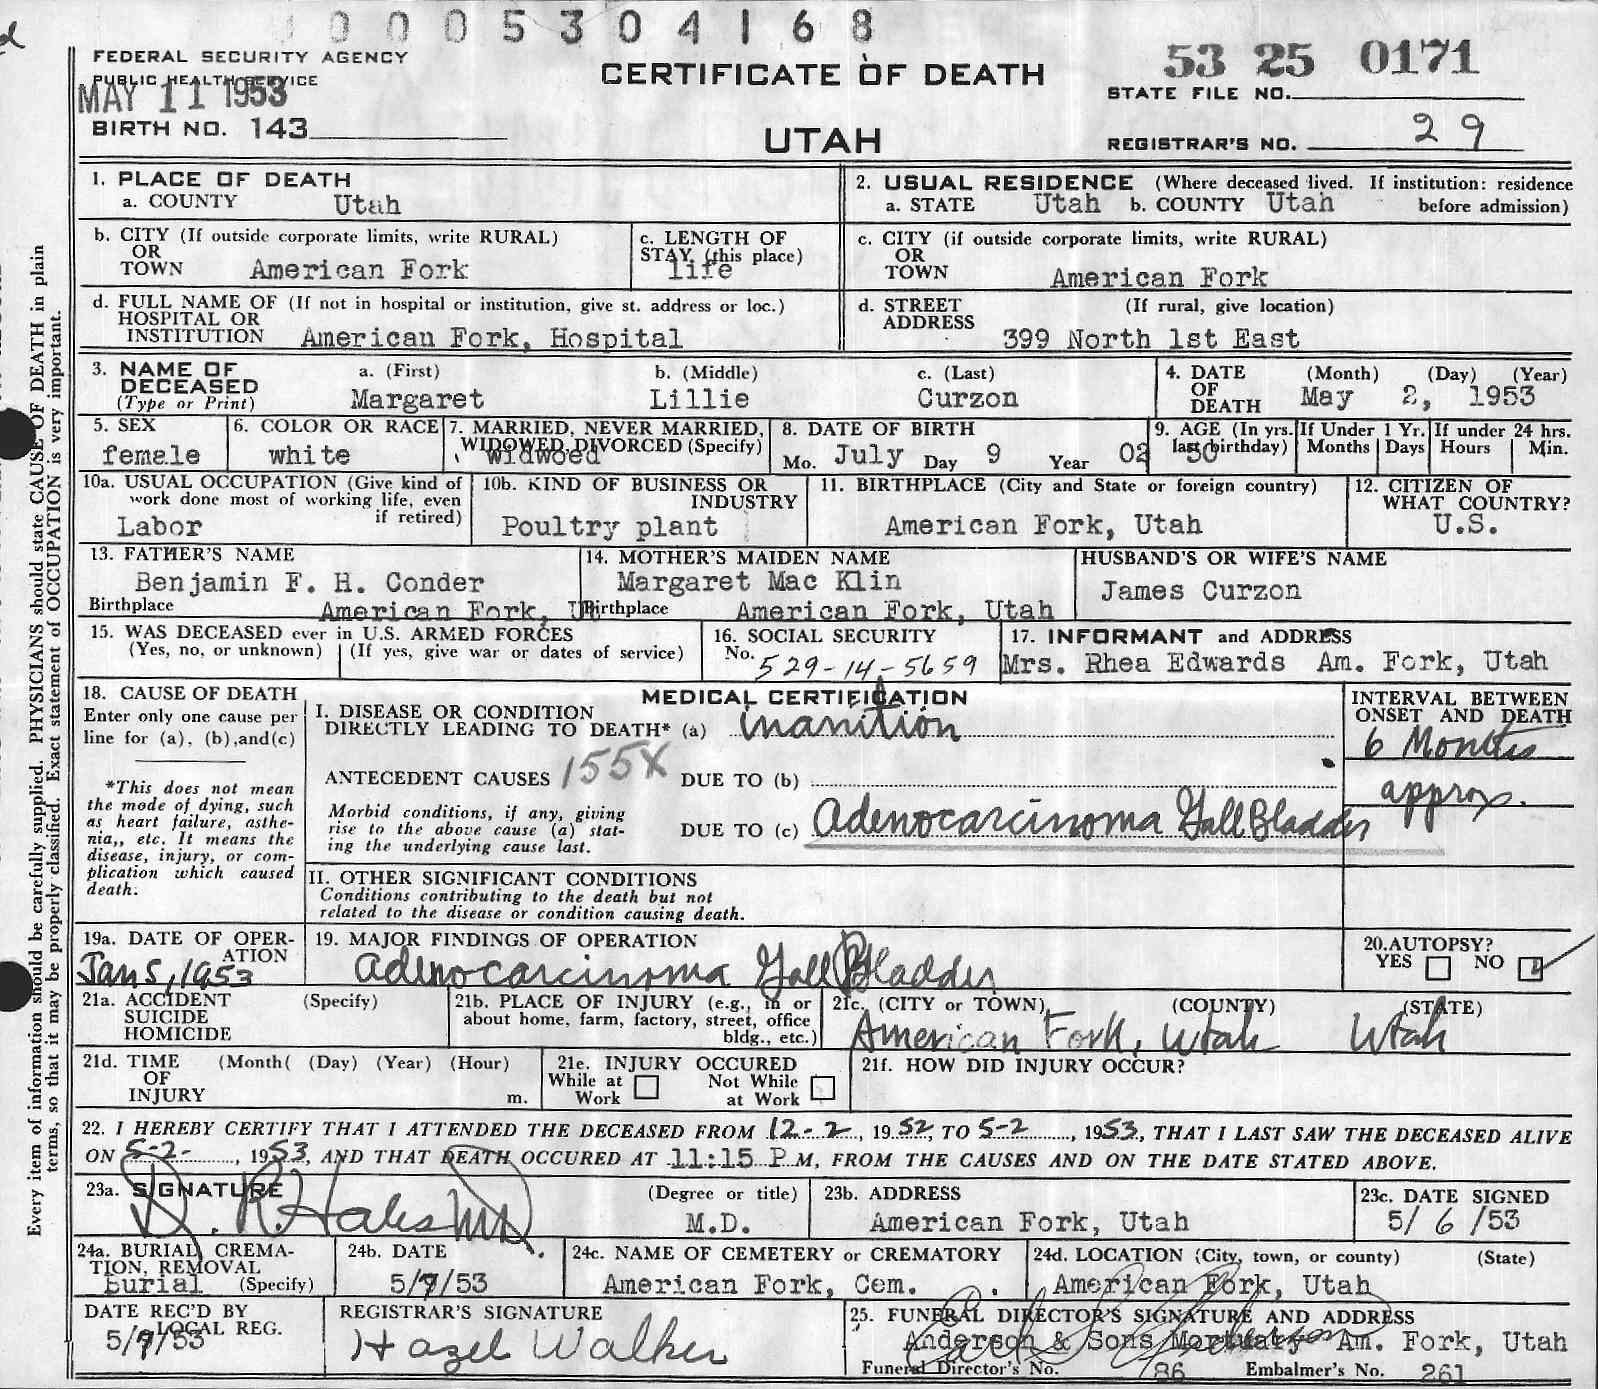 0 0 0 5 3 0 4 1 6 8
FEDERAL SECURITY AGENCY
PUBLIC HEALTH SERVICE
MAY 11 1953
BIRTH NO. 143
CERTIFICATE OF DEATH
UTAH
53 25 0171
STATE FILE NO.
REGISTRAR'S NO. 29
Every item of information should be carefully supplied. PHYSICIANS should state CAUSE OF DEATH in plain
terms, so that it may be properly classified. Exact statement of OCCUPATION is very important.
1. PLACE OF DEATH
a. COUNTY Utah
2. USUAL RESIDENCE (Where deceased lived. If institution: residence
a. STATE Utah b. COUNTY Utah before admission)
b. CITY (If outside corporate limits, write RURAL)
OR
TOWN American Fork
c. LENGTH OF
STAY (this place)
life
c. CITY (if outside corporate limits, write RURAL)
OR
TOWN American Fork
d. FULL NAME OF (If not in hospital or institution, give st. address or loc.)
HOSPITAL OR
INSTITUTION American Fork, Hospital
d. STREET (If rural, give location)
ADDRESS
399 North 1st East
3. NAME OF a. (First) b. (Middle) c. (Last)
DECEASED
(Type or Print) Margaret Lillie Curzon
4. DATE (Month) (Day) (Year)
OF
DEATH May 2, 1953
5. SEX
female
6. COLOR OR RACE
white
7. MARRIED, NEVER MARRIED,
WIDOWED, DIVORCED (Specify)
widwoed
8. DATE OF BIRTH
Mo. July Day 9 Year 02
9. AGE (In yrs.
last birthday)
50
If Under 1 Yr.
Months Days
If under 24 hrs.
Hours Min.
10a. USUAL OCCUPATION (Give kind of
work done most of working life, even
if retired)
Labor
10b. KIND OF BUSINESS OR
INDUSTRY
Poultry plant
11. BIRTHPLACE (City and State or foreign country)
American Fork, Utah
12. CITIZEN OF
WHAT COUNTRY?
U.S.
13. FATHER'S NAME
Benjamin F. H. Conder
Birthplace American Fork, Ut
14. MOTHER'S MAIDEN NAME
Margaret Mac Klin
Birthplace American Fork, Utah
HUSBAND'S OR WIFE'S NAME
James Curzon
15. WAS DECEASED ever in U.S. ARMED FORCES
(Yes, no, or unknown) (If yes, give war or dates of service)
16. SOCIAL SECURITY
No. 529-14-5659
17. INFORMANT and ADDRESS
Mrs. Rhea Edwards Am. Fork, Utah
18. CAUSE OF DEATH
Enter only one cause per
line for (a), (b), and (c)
*This does not mean
the mode of dying, such
as heart failure, asthe-
nia,, etc. It means the
disease, injury, or com-
plication which caused
death.
MEDICAL CERTIFICATION
I. DISEASE OR CONDITION
DIRECTLY LEADING TO DEATH* (a) inanition
ANTECEDENT CAUSES 155X DUE TO (b)
Morbid conditions, if any, giving
rise to the above cause (a) stat-
ing the underlying cause last.
DUE TO (c) Adenocarcinoma Gall Bladder
INTERVAL BETWEEN
ONSET AND DEATH
6 Months
approx.
II. OTHER SIGNIFICANT CONDITIONS
Conditions contributing to the death but not
related to the disease or condition causing death.
19a. DATE OF OPER-
ATION
Jan 5, 1953
19. MAJOR FINDINGS OF OPERATION
Adenocarcinoma Gall Bladder
20. AUTOPSY?
YES NO
21a. ACCIDENT (Specify)
SUICIDE
HOMICIDE
21b. PLACE OF INJURY (e.g., in or
about home, farm, factory, street, office
bldg., etc.)
21c. (CITY or TOWN) (COUNTY) (STATE)
American Fork, Utah Utah
21d. TIME (Month( (Day) (Year) (Hour)
OF
INJURY m.
21e. INJURY OCCURED
While at Work Not While at Work
21f. HOW DID INJURY OCCUR?
22. I HEREBY CERTIFY THAT I ATTENDED THE DECEASED FROM 12-2, 1952, TO 5-2, 1953, THAT I LAST SAW THE DECEASED ALIVE
ON 5-2-, 1953, AND THAT DEATH OCCURED AT 11:15 P M, FROM THE CAUSES AND ON THE DATE STATED ABOVE.
23a. SIGNATURE (Degree or title)
M.D.
23b. ADDRESS
American Fork, Utah
23c. DATE SIGNED
5/ 6 /53
24a. BURIAL, CREMA-
TION, REMOVAL
burial (Specify)
24b. DATE
5/7/53
24c. NAME OF CEMETERY or CREMATORY
American Fork, Cem.
24d. LOCATION (City, town, or county) (State)
American Fork, Utah
DATE REC'D BY
LOCAL REG.
5/7/53
REGISTRAR'S SIGNATURE
Hazel Walker
25. FUNERAL DIRECTOR'S SIGNATURE AND ADDRESS
Anderson & Sons Mortuary Am. Fork, Utah
Funeral Director's No. 86 Embalmer's No. 261